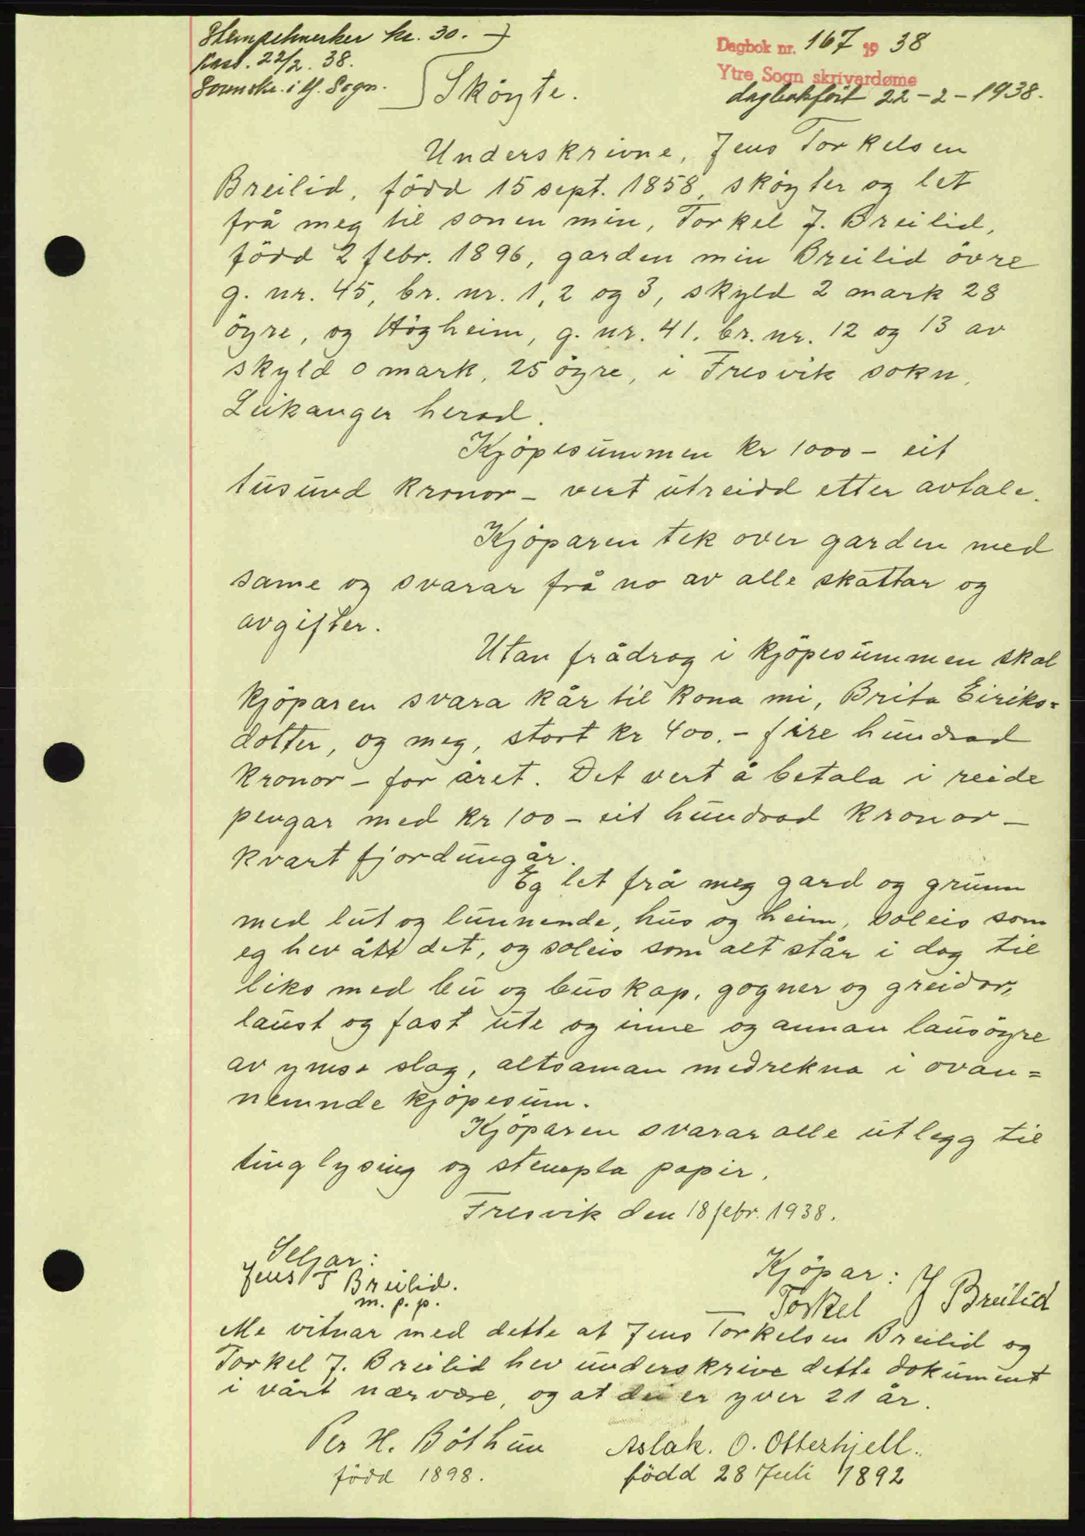 Stempelmerker kr. 30.
kass. 22/2. 38.
Sorenskr. i Y. Sogn.
Dagbok nr. 167 1938
Ytre Sogn skrivardøme
dagbokført 22-2-1938.
Skøyte.
Underskrivne, Jens Torkelsen
Breilid, född 15 sept. 1858, sköyter og let
frå meg til sonen min, Torkel J. Breilid,
född 2 febr. 1896, garden min Breilid övre
g. nr. 45, br. nr. 1, 2 og 3, skyld 2 mark 28
öyre, og Högheim, g. nr. 41. br. nr. 12 og 13 av
skyld 0 mark, 25 öyre, i Fresvik sokn,
Leikanger herad.
Kjöpesummen kr 1000 - eit
tusund kronor - vert utreidd etter avtale.
Kjöparen tek over garden med
same og svarar frå no av alle skattar og
avgifter.
Utan frådrag i kjöpesummen skal
kjöparen svara kår til kona mi, Brita Eiriks=
dotter, og meg, stort kr 400. - fire hundrad
kronor - for året. Det vert å betala i reide
pengar med kr 100 - eit hundrad kronor -
kvart fjordungår.
Eg let frå meg gard og grunn
med lut og lunnende, hus og heim, soleis som
eg hev ått det, og soleis som alt står i dag til
liks med bu og buskap, gogner og greidor,
laust og fast ute og inne og annan lausöyre
av ymse slag, altsaman medrekna i ovan=
nemnde kjöpesum.
Kjöparen svarar alle utlegg til
tinglysing og stempla papir.
Fresvik den 18 febr. 1938.
Seljar:
Jens T Breilid.
m. p. p.
Kjöpar:
Torkel J Breilid
Me vitnar med dette at Jens Torkelsen Breilid og
Torkel J. Breilid hev underskrive dette dokument
i vårt nærvære, og at dei er yver 21 år.
Per H. Böthun
född 1898.
Aslak. O. Otterhjell.
född 28 Juli 1892